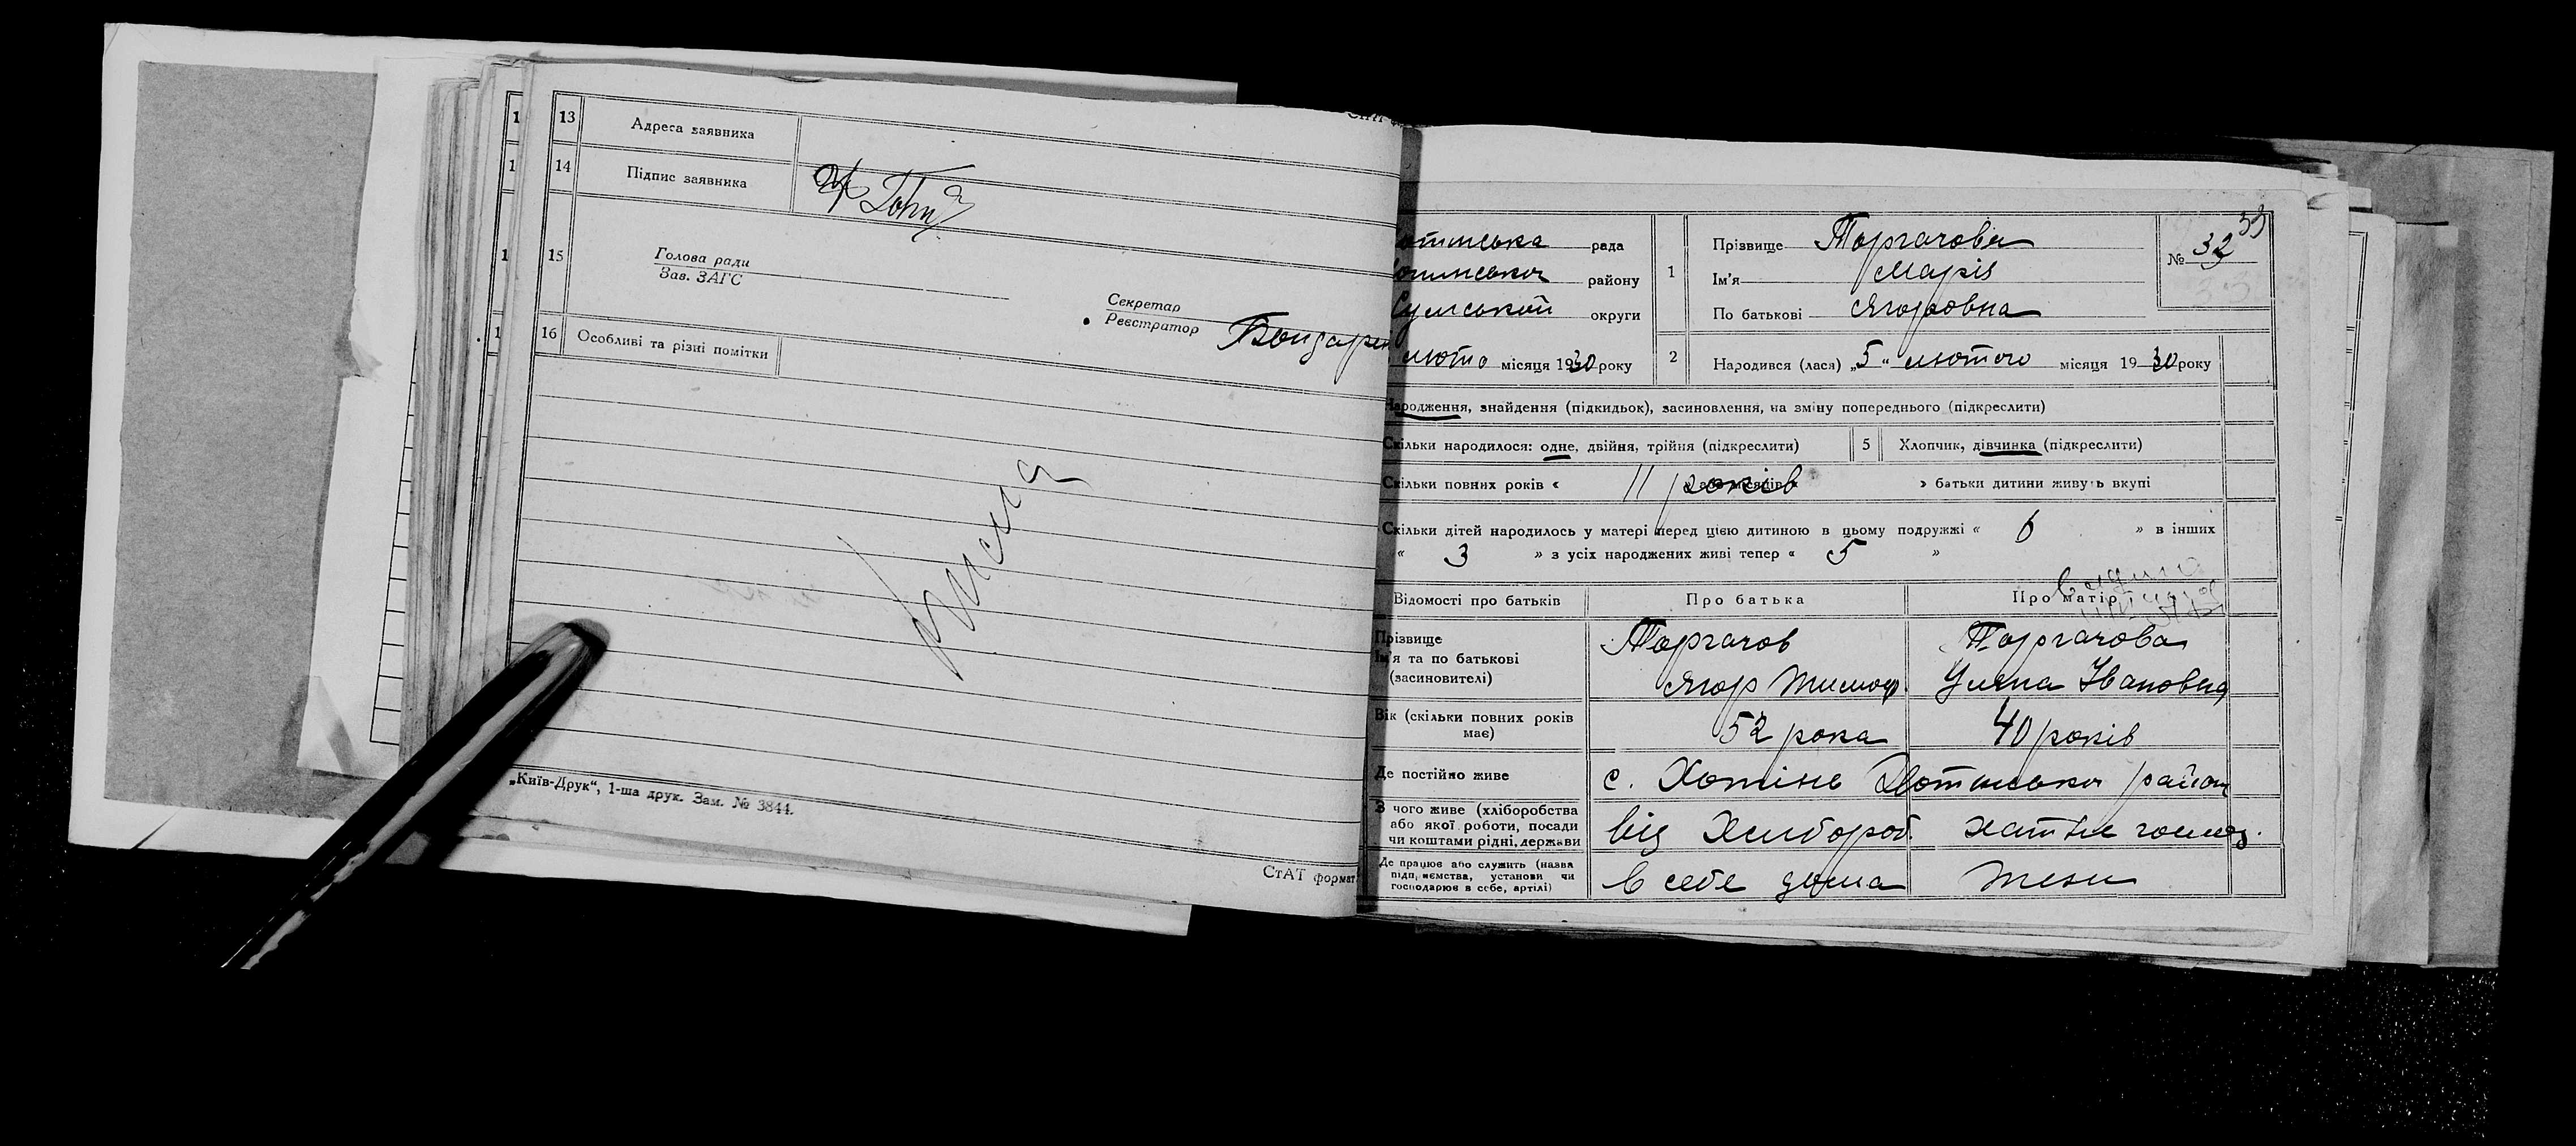 13 Адреса заявника
14 Підпис заявника
15 Голова ради
Зав. ЗАГС
Секретар
Реєстратор Бондарен
16 Особливі та різні помітки
„Київ-Друк“, 1-ша друк. Зам. № 3844.
СтАТ формат
отинська рада
отинського району
Сумської округи
лютого місяця 1930 року
1 Прізвище Торгачова
Ім'я Марія
По батькові Ягоровна
№ 32 33
2 Народився (лася) „5“ лютого місяця 1930 року
Народження, знайдення (підкидьок), засиновлення, на зміну попереднього (підкреслити)
Скільки народилося: одне, двійня, трійня (підкреслити) 5 Хлопчик, дівчинка (підкреслити)
Скільки повних років « 11 років » батьки дитини живуть вкупі
Скільки дітей народилось у матері перед цією дитиною в цьому подружжі « 6 » в інших
« 3 » з усіх народжених живі тепер « 5 »
Відомості про батьків Про батька Про матір
Прізвище Торгачов Торгачова
Ім'я та по батькові
(засиновителі) Ягор Тимоф. Уляна Івановна
Вік (скільки повних років має) 52 рока 40 років
Де постійно живе с. Хотінь Хотинського району
З чого живе (хліборобства
або якої роботи, посади
чи коштами рідні, держави від Хлибороб. хатнє господ.
Де працює або служить (назва
підприємства, установи чи
господарює в себе, артілі) в себе дома тези